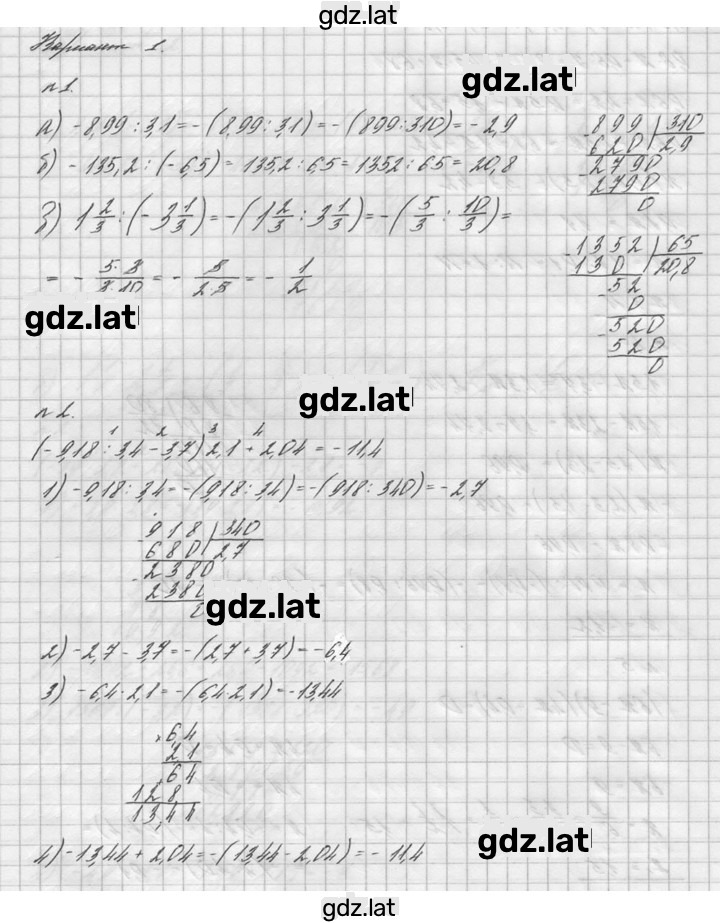 gdz.lat
Вариант 1.
gdz.lat
n1.
а) -8,99 : 3,1 = -(8,99 : 3,1) = -(899 : 310) = -2,9
б) -135,2 : (-6,5) = 135,2 : 6,5 = 1352 : 65 = 20,8
в) 1 2/3 : (-3 1/3) = -(1 2/3 : 3 1/3) = -(5/3 : 10/3) =
= - 5·3/3·10 = - 5/2·5 = - 1/2
899 310
620 2,9
2790
2790
0
1352 65
130 20,8
52
0
520
520
0
gdz.lat
gdz.lat
n2.
1 2 3 4
(-9,18 : 3,4 - 3,7) 2,1 + 2,04 = -11,4
1) -9,18 : 3,4 = -(9,18 : 3,4) = -(918 : 340) = -2,7
918 340
680 2,7
2380
2380
0
gdz.lat
2) -2,7 - 3,7 = -(2,7 + 3,7) = -6,4
3) -6,4 · 2,1 = -(6,4 · 2,1) = -13,44
× 6,4
2 1
64
128
13,44
gdz.lat
4) -13,44 + 2,04 = -(13,44 - 2,04) = -11,4
gdz.lat